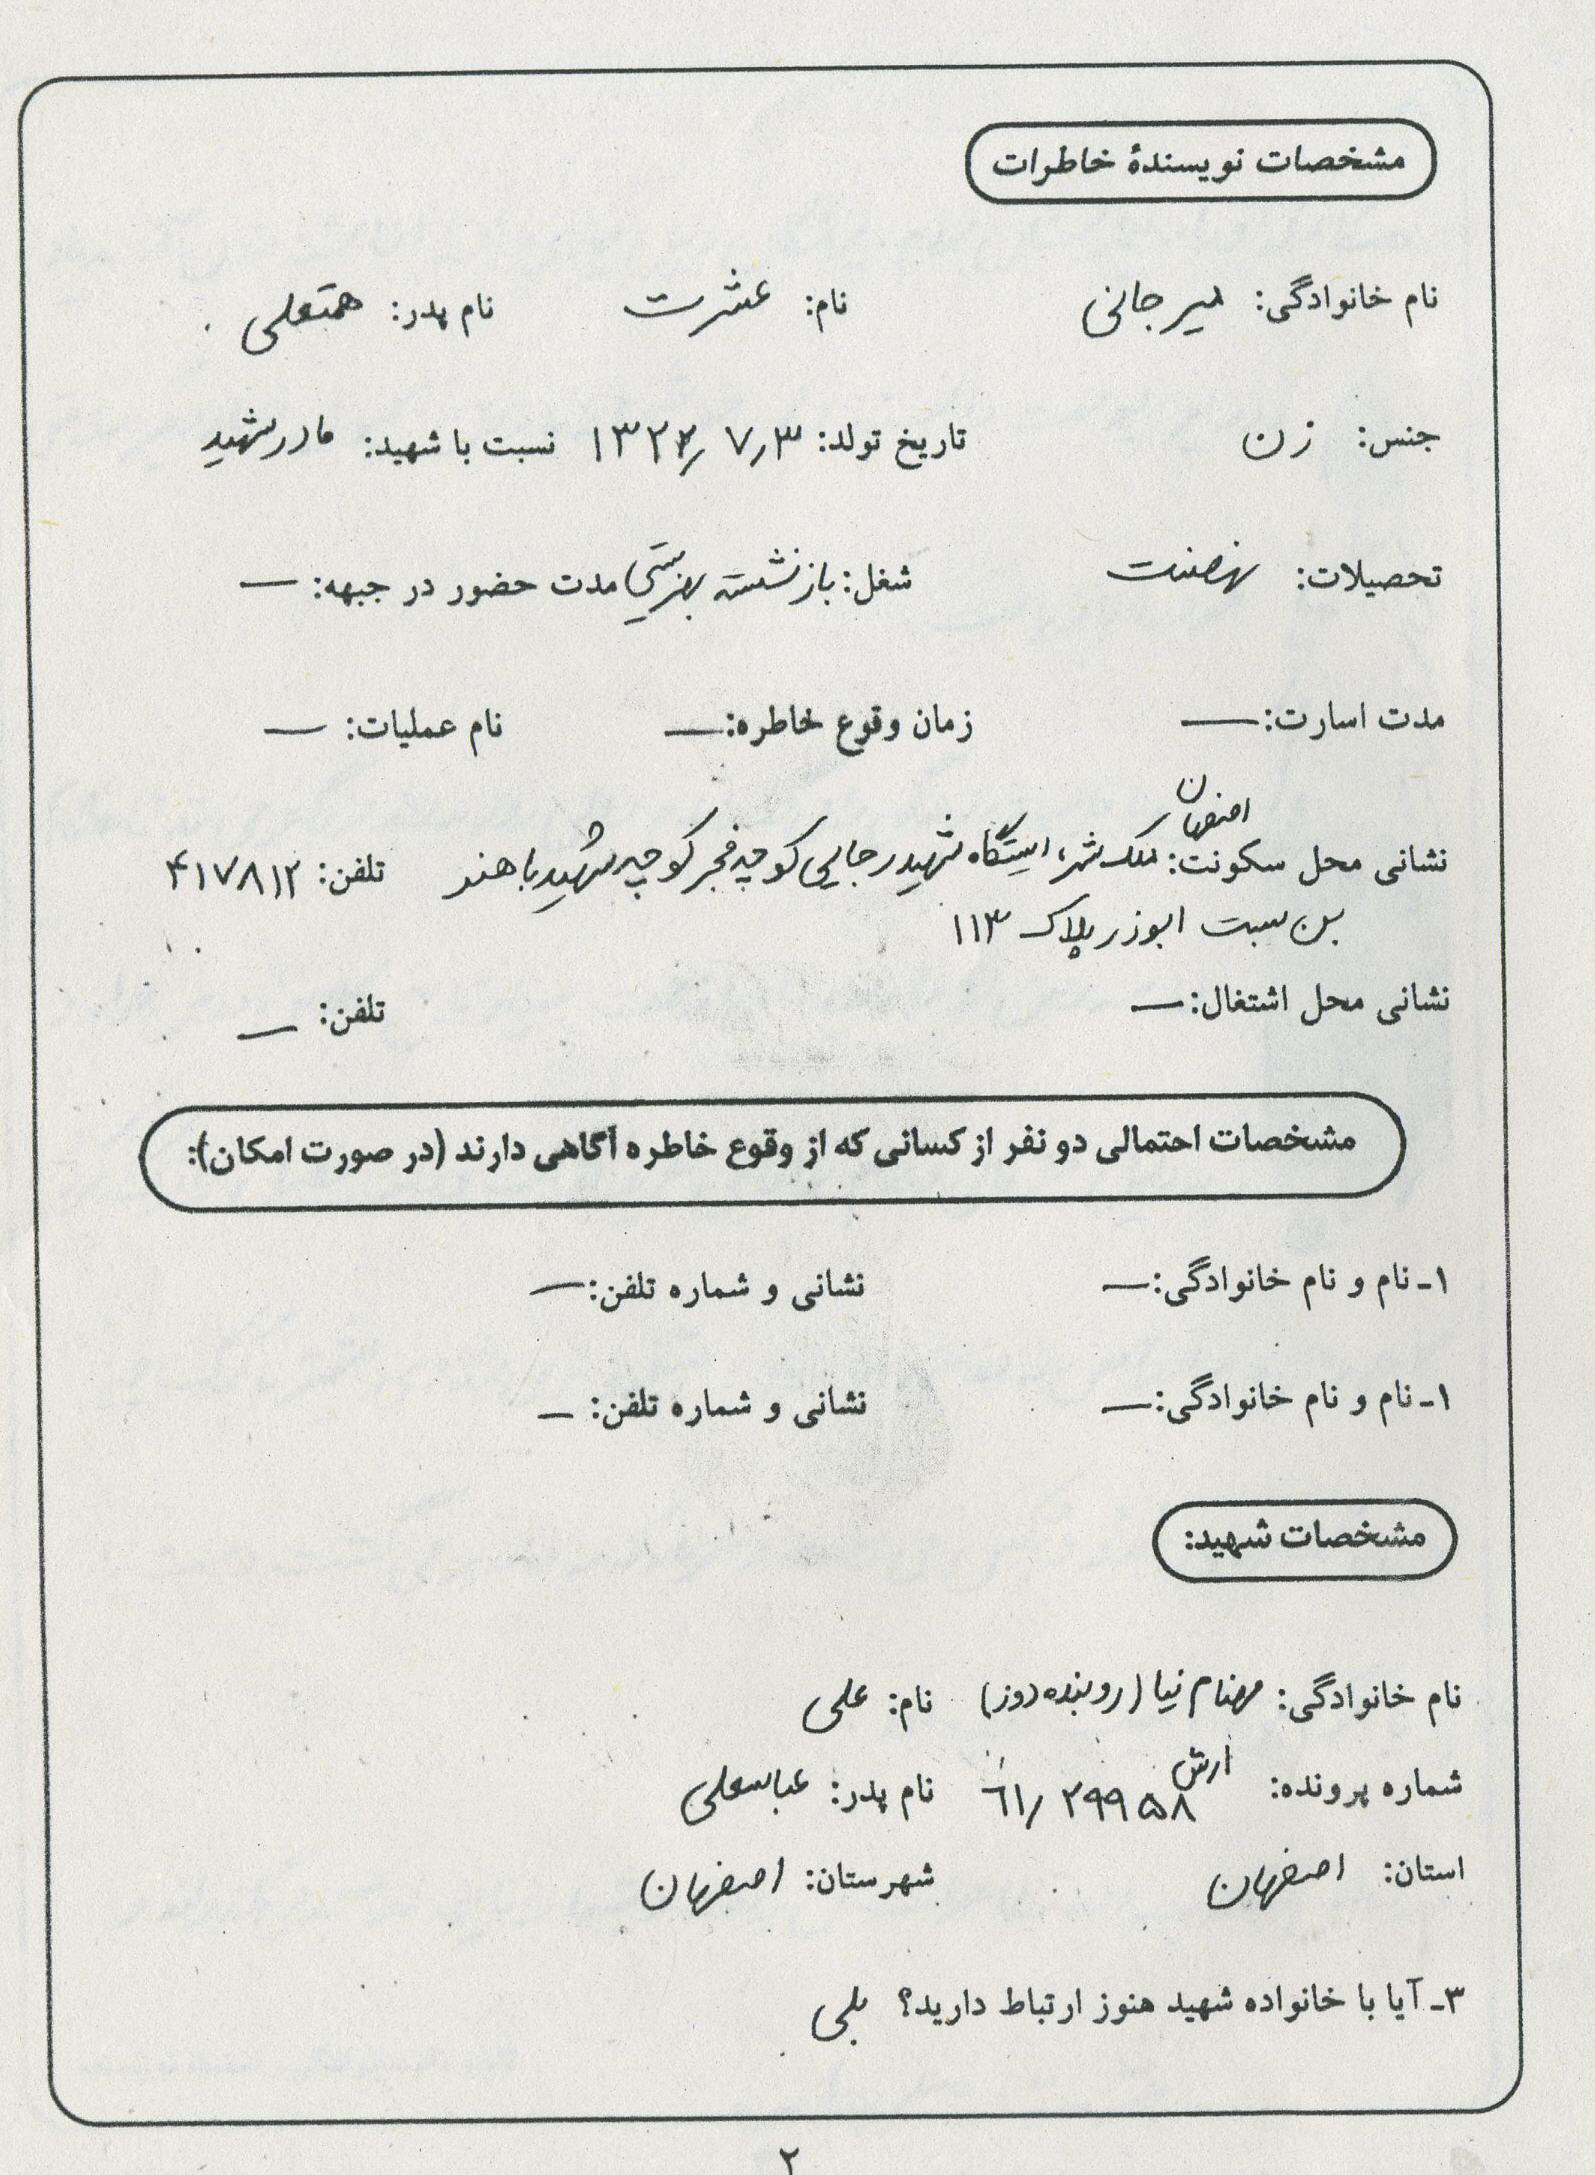 مشخصات نویسندهٔ خاطرات
نام خانوادگی: میرجانی نام: عشرت نام پدر: همتعلی
جنس: زن تاریخ تولد: ۱۳۲۲/۷/۳ نسبت با شهید: مادر شهید
تحصیلات: نهضت شغل: بازنشسته بهزیستی مدت حضور در جبهه: —
مدت اسارت: — زمان وقوع خاطره: — نام عملیات: —
اصفهان
نشانی محل سکونت: ملک شهر، ایستگاه شهید رجایی کوچه فجر کوچه شهید باهنر تلفن: ۴۱۷۸۱۲
بن بست ابوذر پلاک ۱۱۳
نشانی محل اشتغال: — تلفن: —
مشخصات احتمالی دو نفر از کسانی که از وقوع خاطره آگاهی دارند (در صورت امکان):
۱ـ نام و نام خانوادگی: — نشانی و شماره تلفن: —
۱ـ نام و نام خانوادگی: — نشانی و شماره تلفن: —
مشخصات شهید:
نام خانوادگی: مهنام نیا (روبنده دوز) نام: علی
ارش
شماره پرونده: ۶۱/۲۹۹۵۸ نام پدر: عباسعلی
استان: اصفهان شهرستان: اصفهان
۳ـ آیا با خانواده شهید هنوز ارتباط دارید؟ بلی
۲